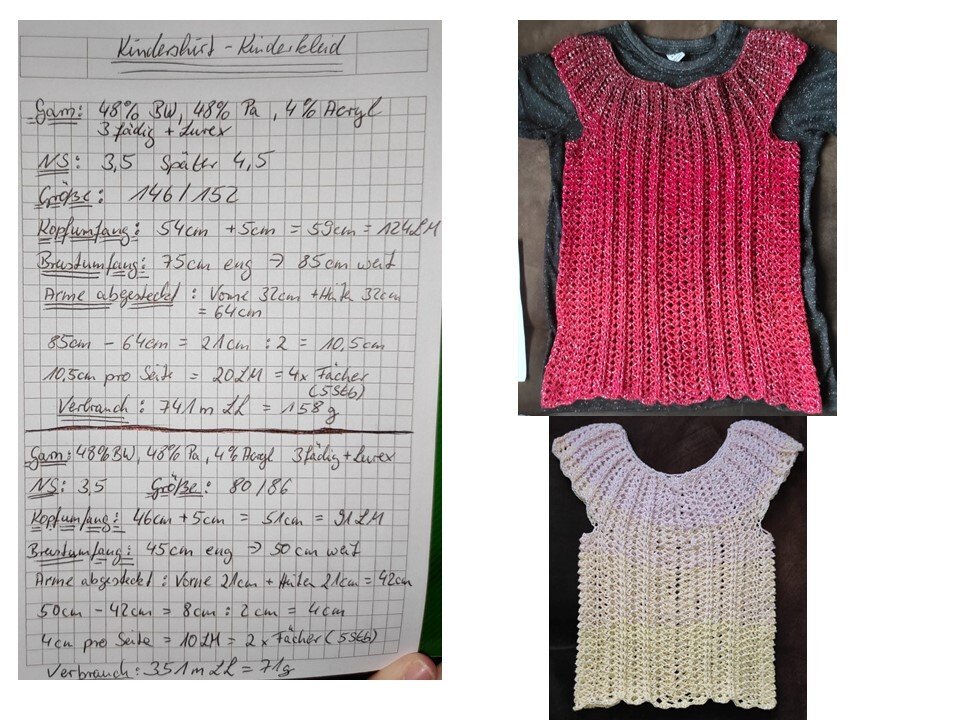 Kindershirt - Kinderkleid
Garn: 48% BW, 48% Pa, 4% Acryl
3 fädig + Lurex
NS: 3,5 Später 4,5
Größe: 146/152
Kopfumfang: 54cm + 5cm = 59cm = 124LM
Brustumfang: 75cm eng => 85cm weit
Arme abgesteckt: Vorne 32cm + Hinten 32cm
= 64cm
85cm - 64cm = 21cm : 2 = 10,5cm
10,5cm pro Seite = 20LM = 4x Fächer
(5Stb)
Verbrauch: 741m LL = 158g
Garn: 48% BW, 48% Pa, 4% Acryl 3fädig + Lurex
NS: 3,5 Größe: 80/86
Kopfumfang: 46cm + 5cm = 51cm = 91LM
Brustumfang: 45cm eng => 50cm weit
Arme abgesteckt: Vorne 21cm + Hinten 21cm = 42cm
50cm - 42cm = 8cm : 2cm = 4cm
4cm pro Seite = 10LM = 2x Fächer (5Stb)
Verbrauch: 351m LL = 71g